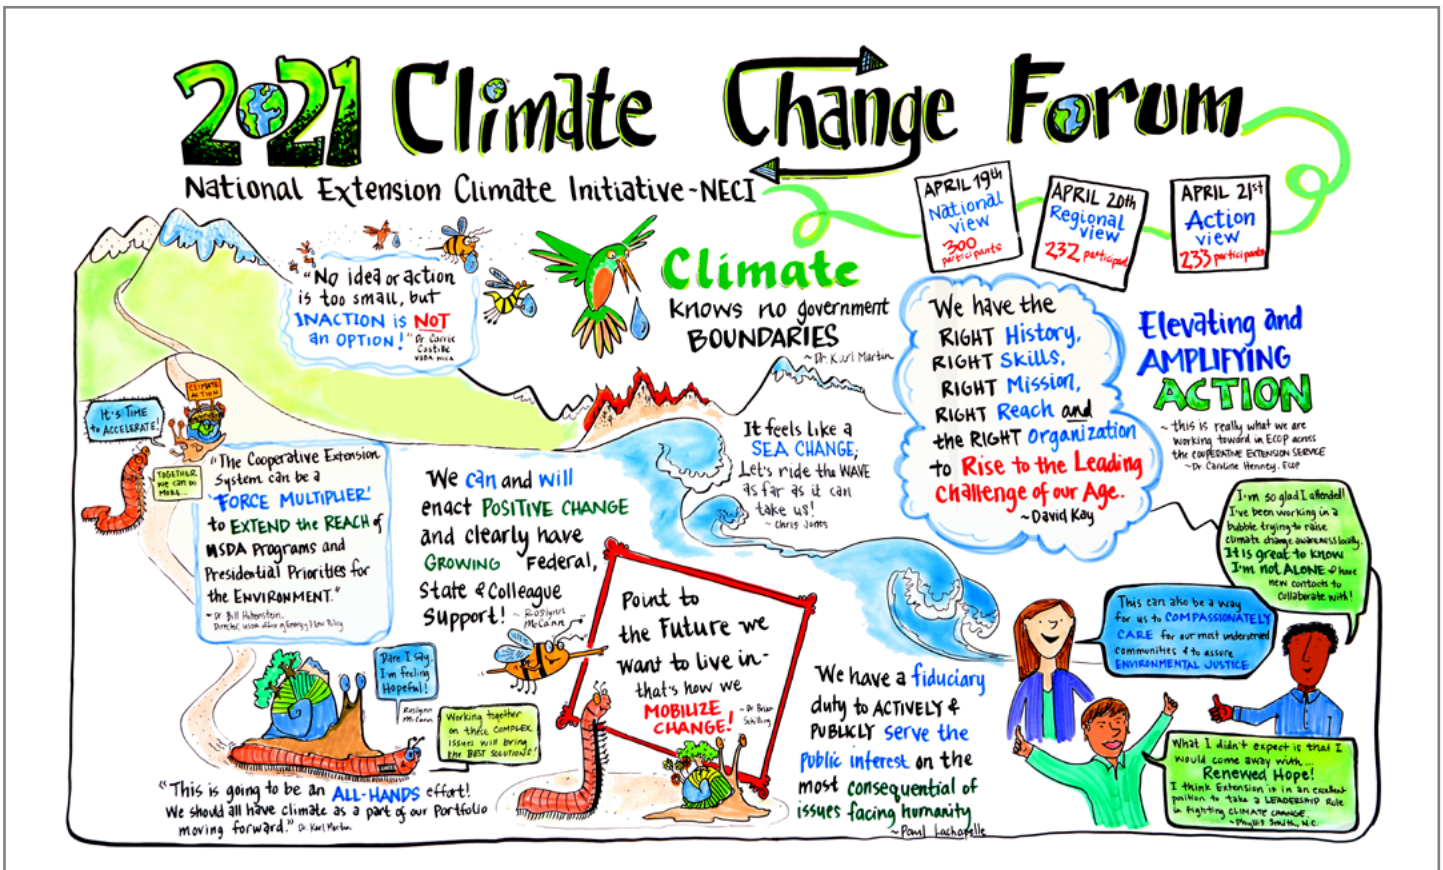 2021 Climate Change Forum
National Extension Climate Initiative ~ NECI
APRIL 19th
National
view
300
participants
APRIL 20th
Regional
view
232 participant
APRIL 21st
Action
view
233 participants
"No idea or action
is too small, but
INACTION is NOT
an OPTION!"
Dr Carrie
Castille
USDA NIFA
Climate
knows no government
BOUNDARIES
~ Dr. Karl Martin
We have the
RIGHT History,
RIGHT Skills,
RIGHT Mission,
RIGHT Reach and
the RIGHT Organization
to Rise to the Leading
Challenge of our Age.
~David Kay
Elevating and
AMPLIFYING
ACTION
~ this is really what we are
working toward in ECOP across
the COOPERATIVE EXTENSION SERVICE
~Dr. Caroline Henney, ECOP
CLIMATE
ACTION
It's TIME
to ACCELERATE!
TOGETHER
we can do
MORE...
"The Cooperative Extension
System can be a
'FORCE MULTIPLIER'
to EXTEND the REACH of
USDA Programs and
Presidential Priorities for
the ENVIRONMENT."
~ Dr Bill Hohenstein,
Director, USDA Office of Energy & Env. Policy
We can and will
enact POSITIVE CHANGE
and clearly have
GROWING Federal,
State & Colleague
Support!
~ Roslynn
McCann
It feels like a
SEA CHANGE,
Let's ride the WAVE
as far as it can
take us!
~ Chris Jones
I'm so glad I attended!
I've been working in a
bubble trying to raise
climate change awareness locally.
It is great to know
I'm not ALONE & have
new contacts to
collaborate with!
This can also be a way
for us to COMPASSIONATELY
CARE for our most underserved
communities & to assure
ENVIRONMENTAL JUSTICE
Point to
the Future we
want to live in-
that's how we
MOBILIZE
CHANGE!
~ Dr Brian
Schilling
Dare I say,
I'm feeling
Hopeful!
Roslynn
McCann
Working together
on these COMPLEX
issues will bring
the BEST SOLUTIONS!
"This is going to be an ALL-HANDS effort!
We should all have climate as a part of our Portfolio
moving forward." Dr. Karl Martin
We have a fiduciary
duty to ACTIVELY &
PUBLICLY serve the
public interest on the
most consequential of
issues facing humanity
~Paul Lachapelle
What I didn't expect is that I
would come away with...
Renewed Hope!
I think Extension is in an excellent
position to take a LEADERSHIP Role
in fighting CLIMATE CHANGE.
~Phyllis Smith, N.C.